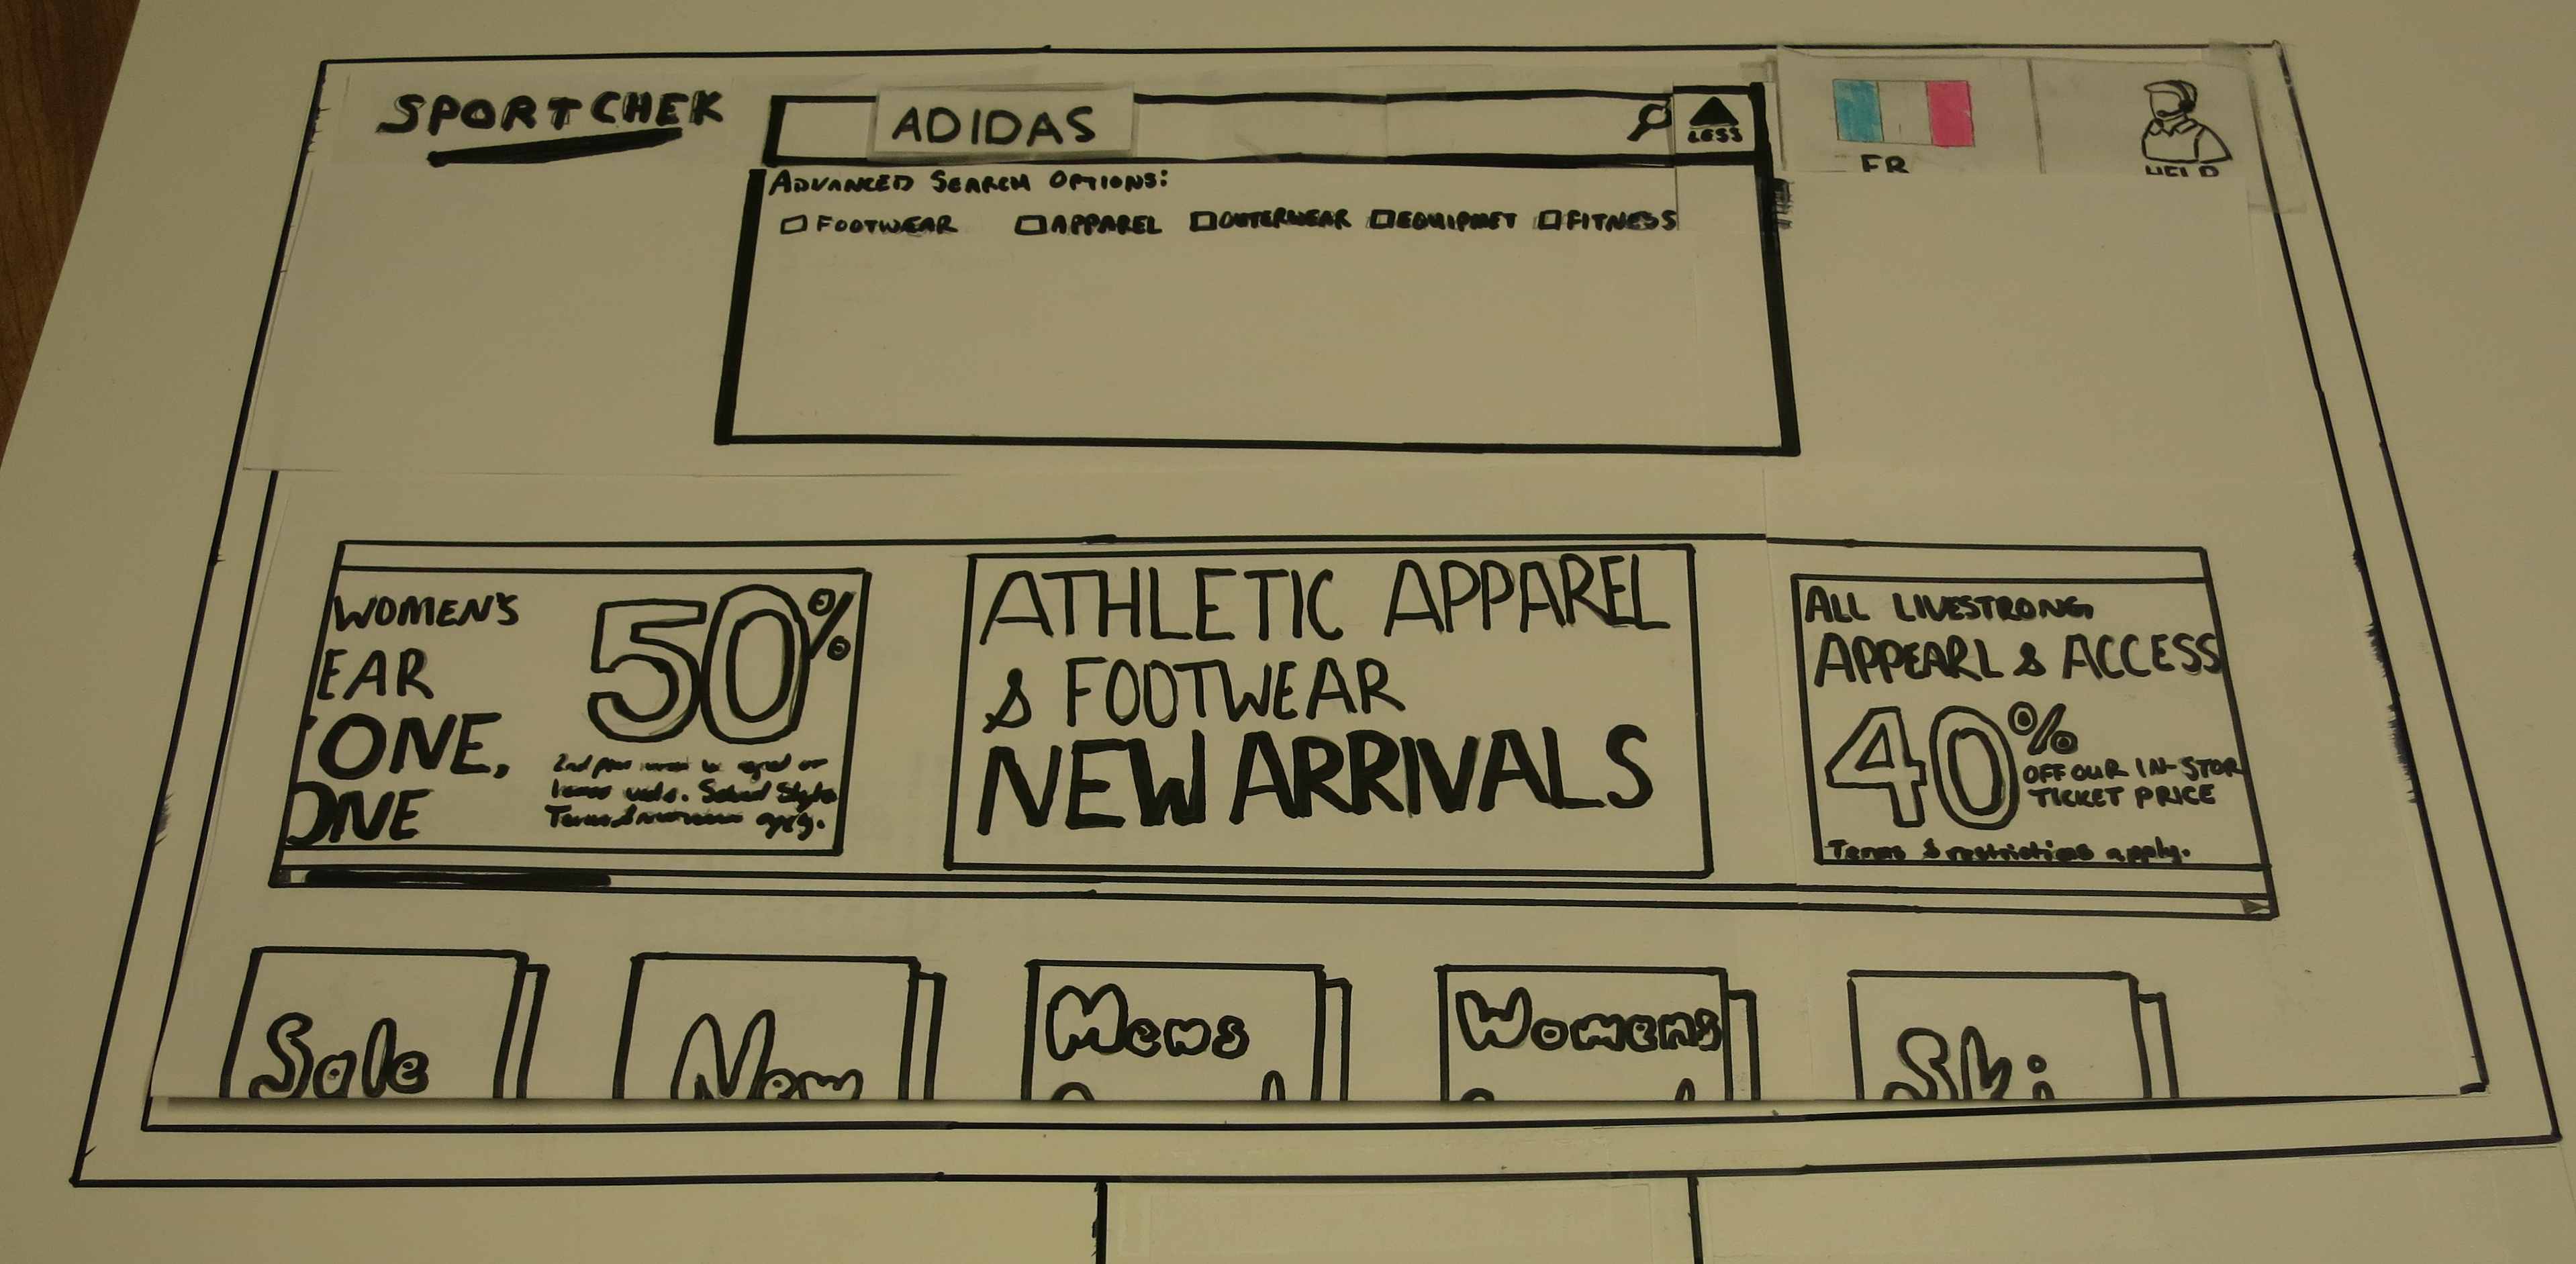 SPORTCHEK
ADIDAS
LESS
FR
HELP
ADVANCED SEARCH OPTIONS:
FOOTWEAR APPAREL OUTERWEAR EQUIPMET FITNESS
WOMEN'S
EAR
ONE,
ONE
50%
2nd
Terms apply.
ATHLETIC APPAREL
& FOOTWEAR
NEW ARRIVALS
ALL LIVESTRONG
APPEARL & ACCESS
40%
OFF OUR IN-STOR
TICKET PRICE
Terms & restrictions apply.
Sale
New
Mens
Womens
Ski